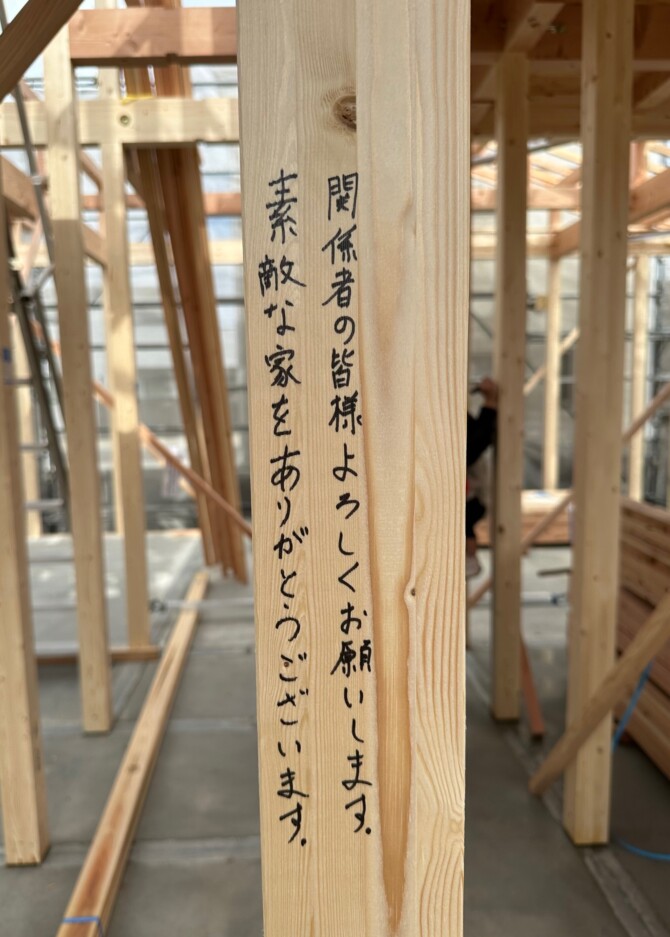 関係者の皆様よろしくお願いします。
素敵な家をありがとうございます。